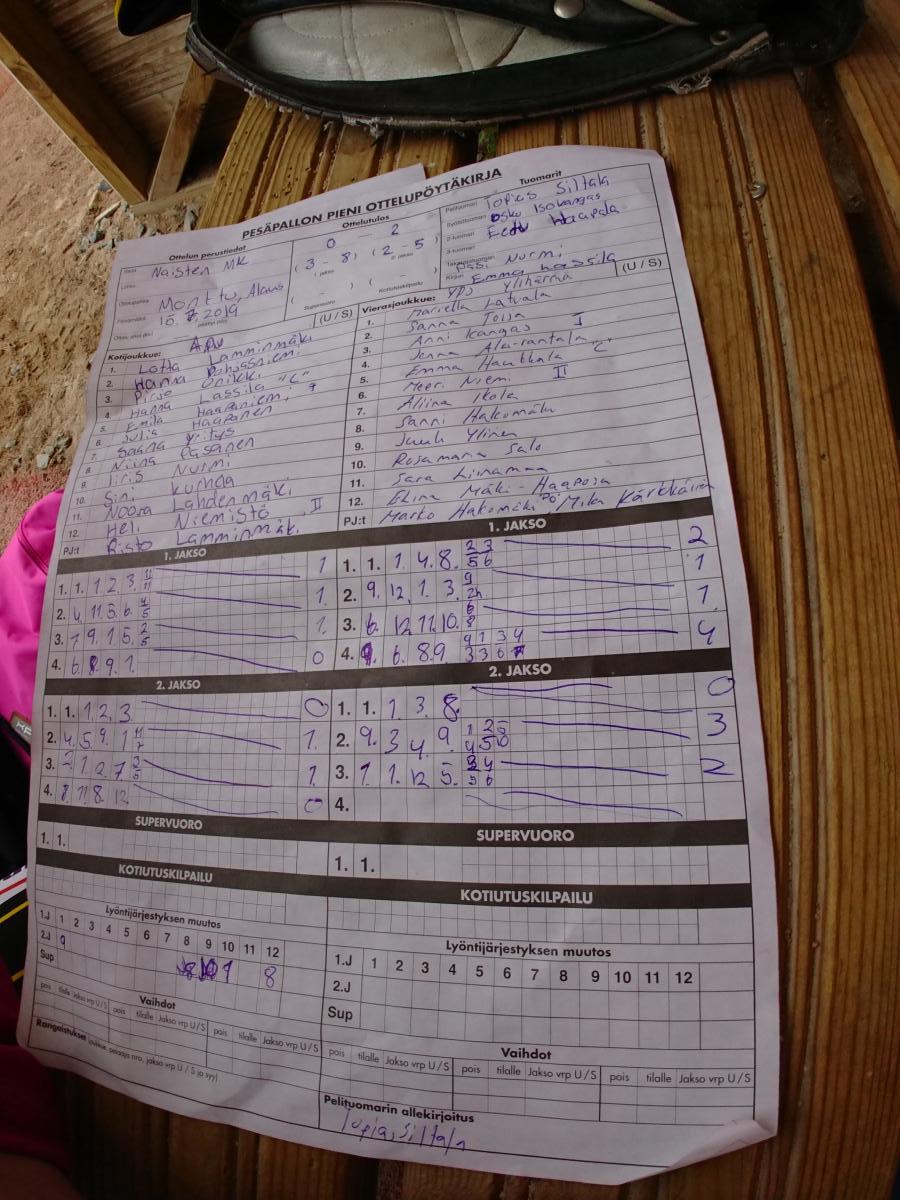 PESÄPALLON PIENI OTTELUPÖYTÄKIRJA
Ottelun perustiedot
Naisten MK
Ottelupaikka
Alavus
2019
Ottelutulos
0 - 2
( 3 - 8 ) ( 2 - 5 )
1. jakso 2. jakso
( - ) ( - )
Supervuoro Kotiutuskilpailu
Tuomarit
Pelituomari Topias Siltala
Syöttötuomari Osku Isokangas
2-tuomari Eetu Haapala
3-tuomari
Takatuomari Pasi Nurmi
Kirjuri Emma Lassila
Kotijoukkue: APV (U / S)
1. Lotta Lamminmäki
2. Hanna
3.
4. Hanna Lassila "C"
5. Emilia Haapaniemi
6. Julia Haapanen
7. Saana Yritys
8. Niina Pasanen
9. Iiris Nurmi
10. Sini Kurhela
11. Noora Lahdenmäki
12. Heli Niemistö II
PJ:t Risto Lamminmäki
Vierasjoukkue: YPJ Ylihärmä (U / S)
1. Mariella Latvala
2. Sanna Toija
3. Anni Kangas I
4. Jenna Ala-rantala "C"
5. Emma Hautkala
6. Meeri Niemi II
7. Aliina Ikola
8. Sanni Hakomäki
9. Ylinen
10. Rosamaria Salo
11. Sara Liinamaa
12. Elina Mäki-Haapoja
PJ:t Marko Hakomäki Mika Kärkkäinen
1. JAKSO
1. 1. 1. 2. 3. 11 11 1
2. 4. 11. 5. 6. 4 5 1.
3. 7 9. 1. 5. 2 5 1.
4. 6. 8. 9. 1. 0
1. JAKSO
1. 1. 1. 4. 8. 2 3 5 6 2
2. 9. 12. 1. 3. 1
3. 6. 12. 11. 10. 6 8 1.
4. 9. 6. 8. 9 4
2. JAKSO
1. 1. 1. 2. 3. 0
2. 4. 5. 9. 1 1.
3. 1.
4. 8. 11. 8. 12. 0
2. JAKSO
1. 1. 1. 3. 8. 0
2. 9. 3 4. 9. 3
3. 1. 1. 12 5. 2
4.
SUPERVUORO
1. 1.
SUPERVUORO
1. 1.
KOTIUTUSKILPAILU
KOTIUTUSKILPAILU
Lyöntijärjestyksen muutos
1.J 1 2 3 4 5 6 7 8 9 10 11 12
2.J 9 8
Sup
Lyöntijärjestyksen muutos
1.J 1 2 3 4 5 6 7 8 9 10 11 12
2.J
Sup
Vaihdot
pois tilalle Jakso vrp U/S pois tilalle Jakso vrp U/S pois tilalle Jakso vrp U/S
Vaihdot
pois tilalle Jakso vrp U/S pois tilalle Jakso vrp U/S pois tilalle Jakso vrp U/S
Rangaistukset (joukkue, pelaaja nro, jakso vrp U / S ja syy)
Pelituomarin allekirjoitus
Topias Siltala